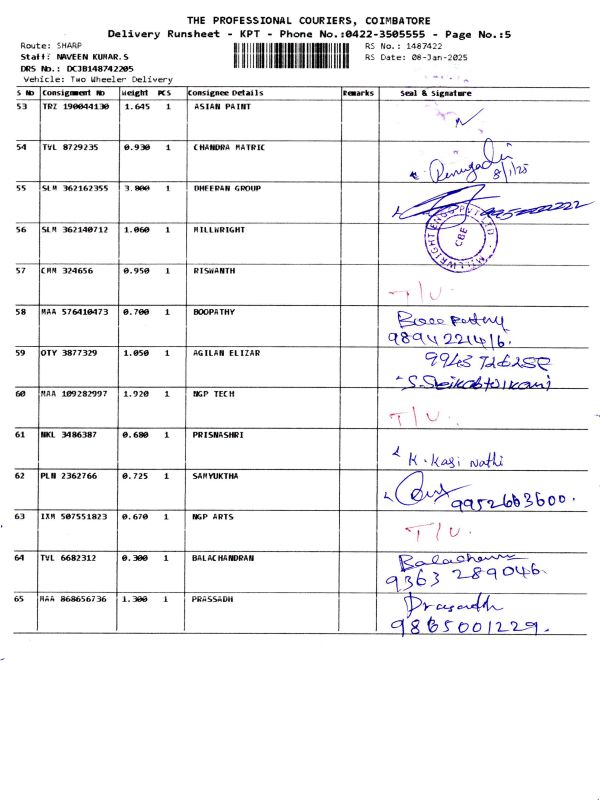 THE PROFESSIONAL COURIERS, COIMBATORE
Delivery Runsheet - KPT - Phone No.:0422-3505555 - Page No.:5
Route: SHARP RS No.: 1487422
Staff: NAVEEN KUMAR.S RS Date: 08-Jan-2025
DRS No.: DCJB148742205
Vehicle: Two Wheeler Delivery
S No Consignment No Weight PCS Consignee Details Remarks Seal & Signature
53 TRZ 190044130 1.645 1 ASIAN PAINT
54 TVL 8729235 0.930 1 CHANDRA MATRIC
8/1/25
55 SLM 362162355 3.800 1 DHEERAN GROUP
56 SLM 362140712 1.060 1 MILLWRIGHT
CBE
57 CMM 324656 0.950 1 RISWANTH
T/U.
58 MAA 576410473 0.700 1 BOOPATHY
59 OTY 3877329 1.050 1 AGILAN ELIZAR
60 MAA 109282997 1.920 1 NGP TECH
T/U.
61 NKL 3486387 0.680 1 PRISNASHRI
K. Kasi Nathi
62 PLN 2362766 0.725 1 SAMYUKTHA
9952663600.
63 IXM 507551823 0.670 1 NGP ARTS
T/U.
64 TVL 6682312 0.300 1 BALACHANDRAN
9363 289046.
65 MAA 868656736 1.300 1 PRASSADH
Prasaddh
9865001229.